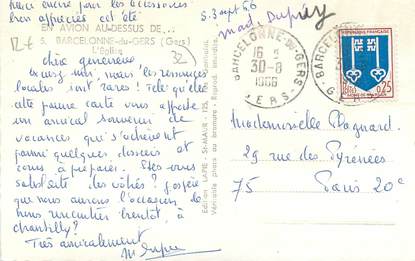 Merci encore pour les accessoires
bien appréciés cet été
EN AVION AU-DESSUS DE...
5. BARCELONNE-du-GERS (Gers)
L'Eglise
32
S. 3 sept 66
mad. Dupréy
Chère geneviève
Excusez-moi, mais les ressources
locales sont rares! Telle qu'elle
cette jaune carte vous apporte
un amical souvenir de
vacances qui s'achèvent
parmi quelques dossiers et
cours à préparer. Êtes-vous
satisfaite des vôtres? J'espère
que nous aurons l'occasion de
nous rencontrer bientôt, à
chantilly?
Très amicalement
Edition LAPIE - St-MAUR
Véritable photo au bromure - Reprod. interdite
BARCELONNE-DU-GERS
16 H
30-8
1966
GERS
REPUBLIQUE FRANÇAISE
0,25
MONT-DE-MARSAN
POSTES
Mademoiselle Magnard
29 rue des Pyrénées
75 Paris 20e